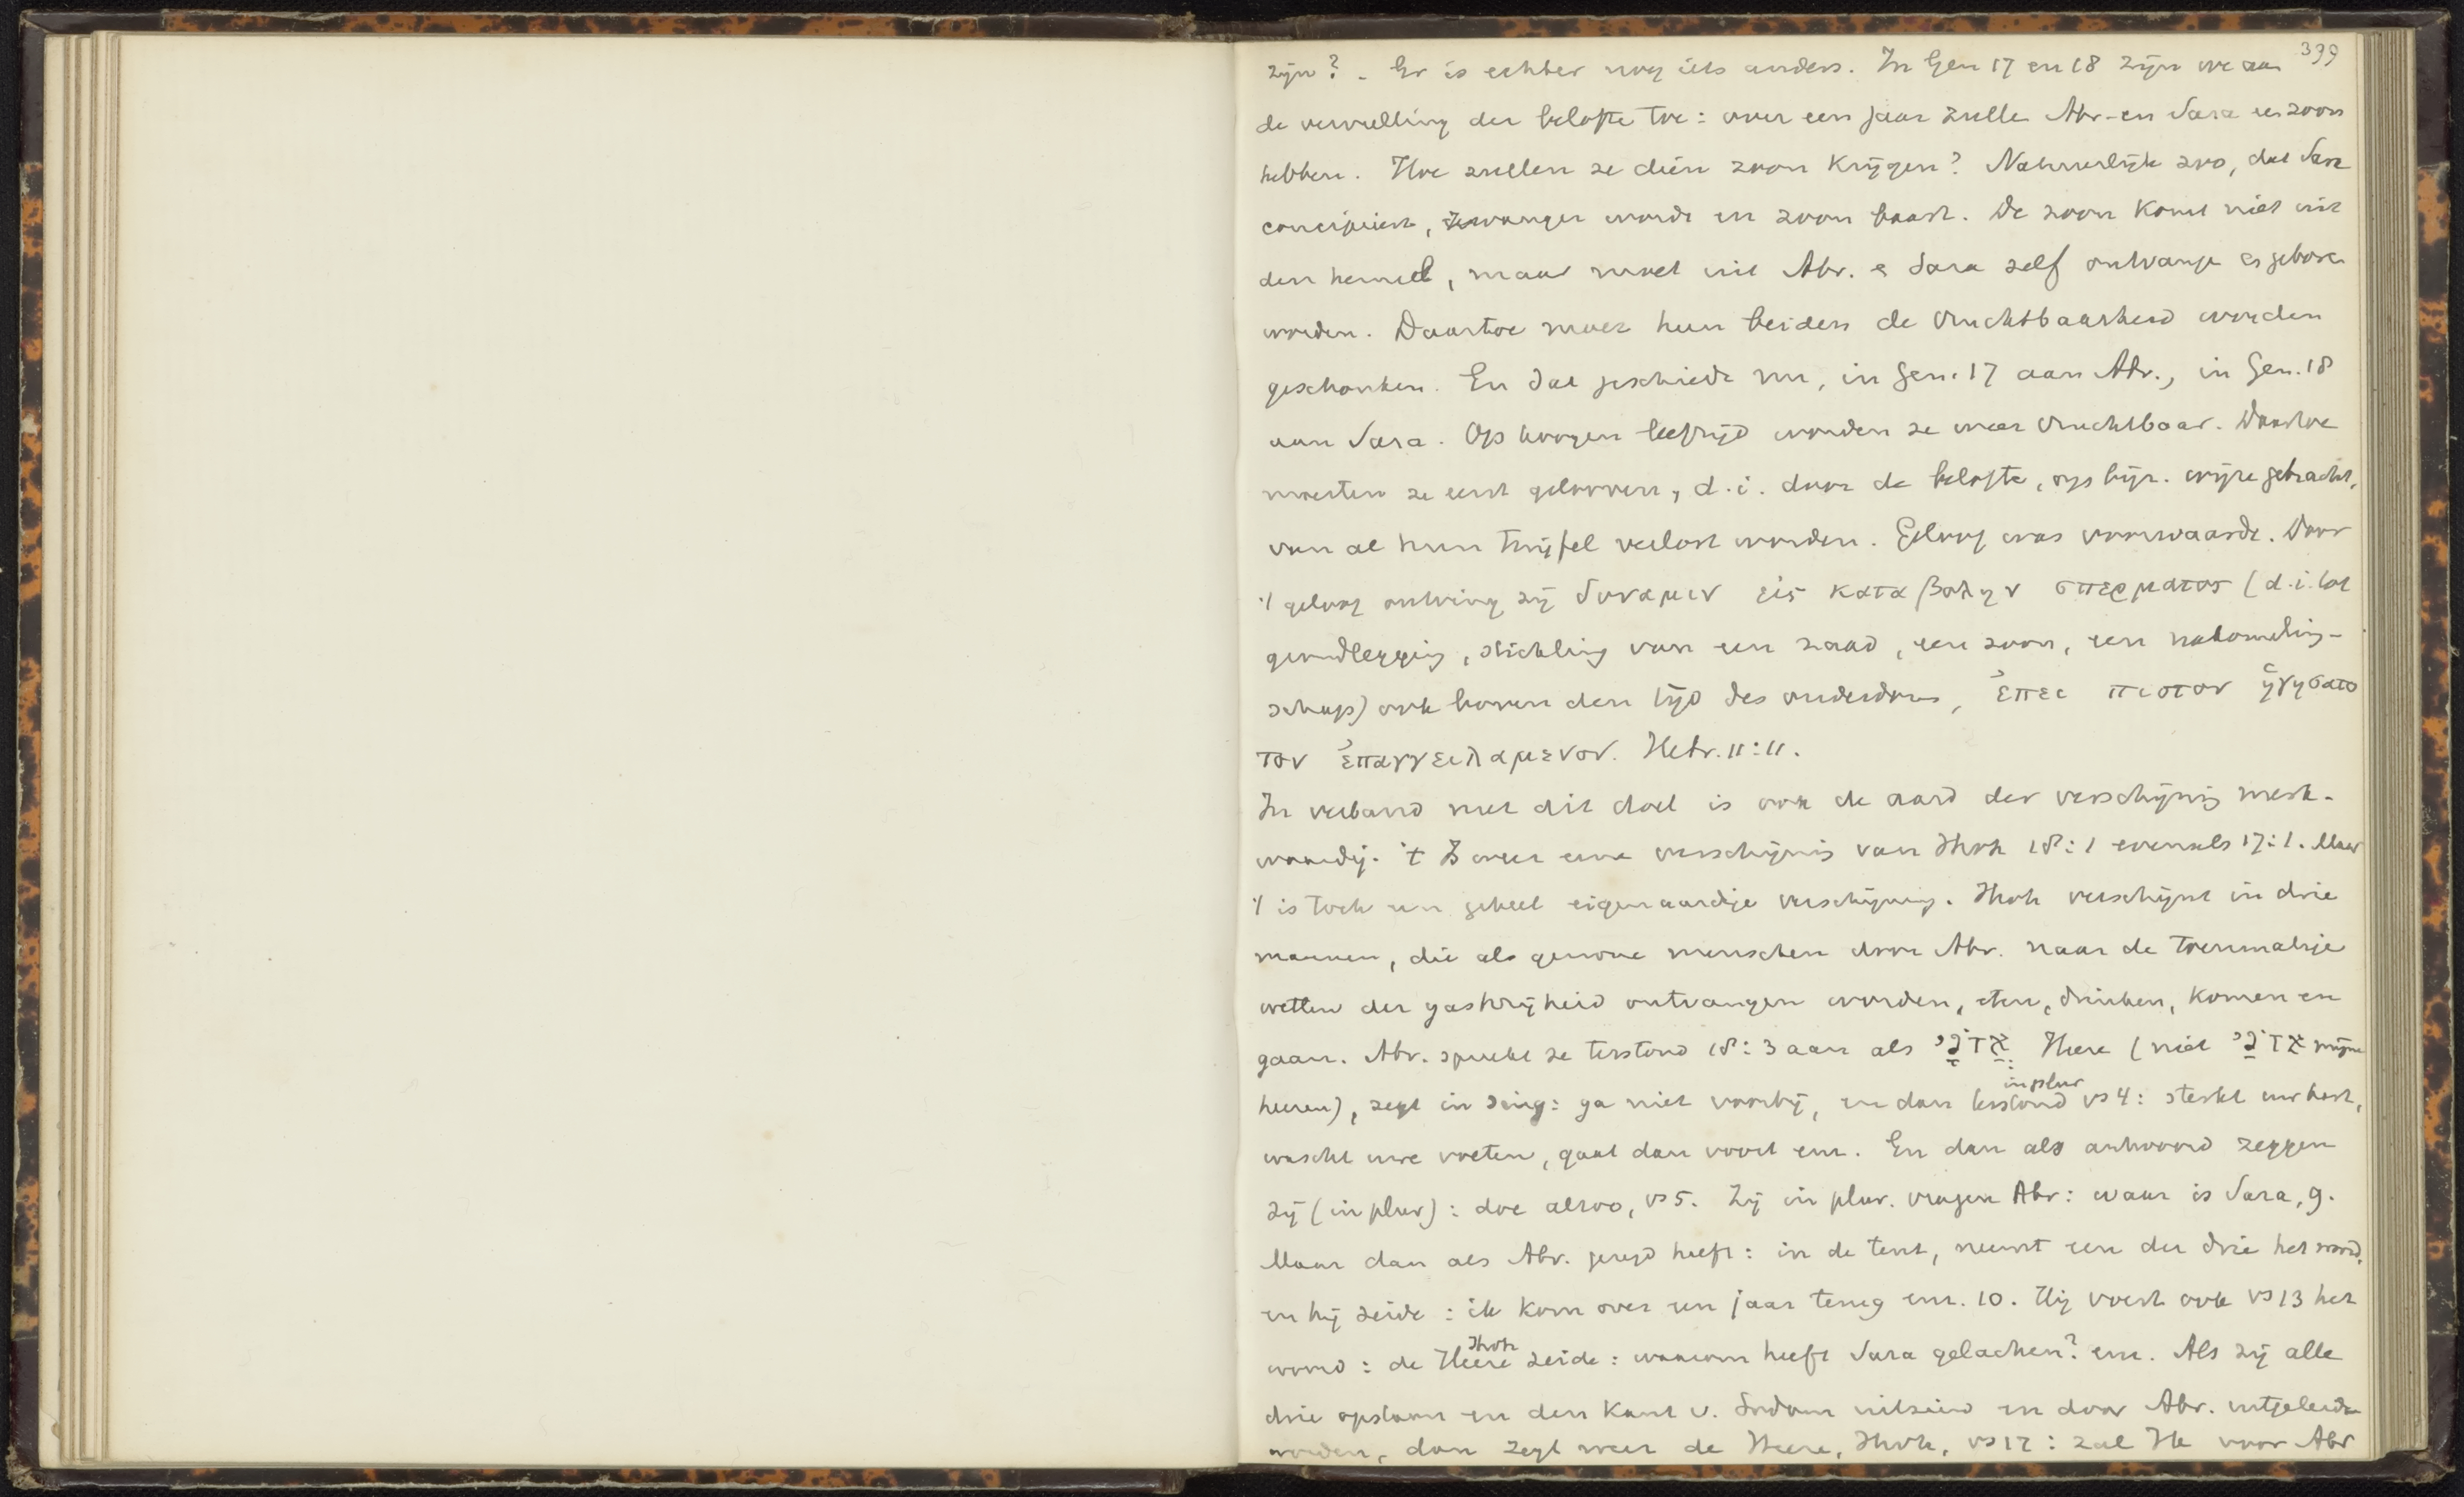 399
zijn? - Er is echter nog iets anders. In Gen 17 en 18 zijn we aan
de vervulling der belofte toe: over een jaar zulle Abr. en Sara een zoon
hebben. Hoe zullen ze dien zoon krijgen? Natuurlijk zoo, dat Sara
concipieert, zwanger wordt en zoon baart. De zoon komt niet uit
den hemel, maar moet uit Abr. & Sara zelf ontvange en gebore
worden. Daartoe moet hun beiden de vruchtbaarheid worden
geschonken. En dat geschiedt nu, in Gen. 17 aan Abr., in Gen. 18
aan Sara. Op hoogen leeftijd worden ze weer vruchtbaar. Daartoe
moesten ze eerst gelooven, d.i. door de belofte, op bijz. wijze gebracht,
van al hun twijfel verlost worden. Geloof was voorwaarde. Door
't geloof ontving zij δυναμιν εἰς καταβολην σπερματος (d.i. tot
grondlegging, stichting van een zaad, een zoon, een nakomeling-
schap) ook boven den tijd des ouderdoms, ἐπει πιστον ἡγησατο
τον ἐπαγγειλαμενον. Hebr. 11:11.
In verband met dit doel is ook de aard der verschijning merk-
waardig. 't Is weer eene verschijnig van Jhvh 18:1 evenals 17:1. Maar
't is toch een geheel eigenaardige verschijning. Jhvh verschijnt in drie
mannen, die als gewone menschen door Abr. naar de toenmalige
wetten der gastvrijheid ontvangen worden, eten, drinken, komen en
gaan. Abr. spreekt ze terstond 18:3 aan als אֲדֹנָי Heere (niet אֲדֹנַי mijne
heeren), zegt in sing: ga niet voorbij, en dan terstond in plur vs 4: sterkt uw hart,
wascht uwe voeten, gaat dan voort enz. En dan als antwoord zeggen
zij (in plur): doe alzoo, vs 5. Zij in plur. vragen Abr: waar is Sara, 9.
Maar dan als Abr. gezegd heeft: in de tent, neemt een der drie het woord,
en hij zeide: ik kom over een jaar terug enz. 10. Hij voert ook vs 13 het
woord: de Heere Jhvh zeide: waarom heeft Sara gelachen? enz. Als zij alle
drie opstaan en den kant v. Sodom uitzien en door Abr. uitgeleide
worden, dan zegt weer de Heere, Jhvh, vs 17: zal Ik voor Abr